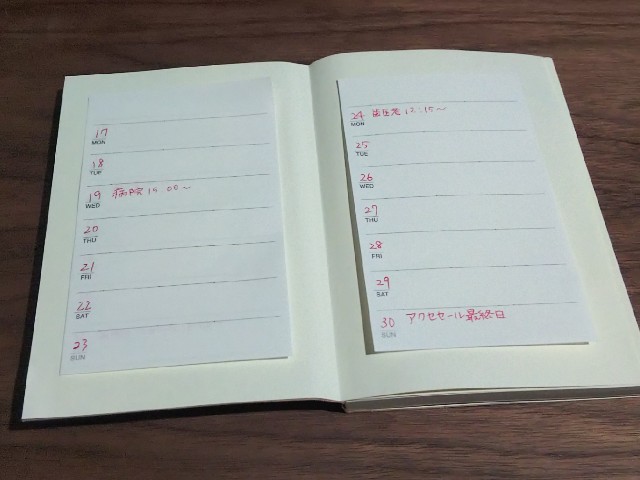 17
MON
18
TUE
19 病院 15:00〜
WED
20
THU
21
FRI
22
SAT
23
SUN
24 歯医者 12:15〜
MON
25
TUE
26
WED
27
THU
28
FRI
29
SAT
30 アクセセール最終日
SUN